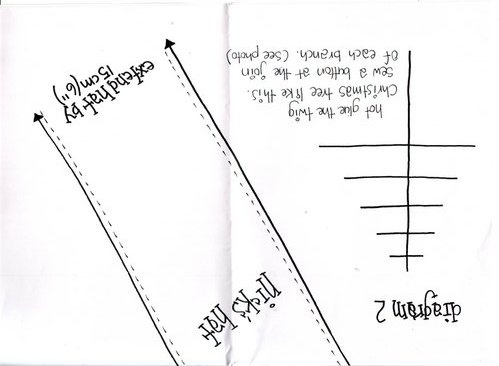 diagram 2
hot glue the twig
Christmas tree like this.
Sew a button at the join
of each branch. (see photo)
nick's hat
extend hat by
15cm (6")